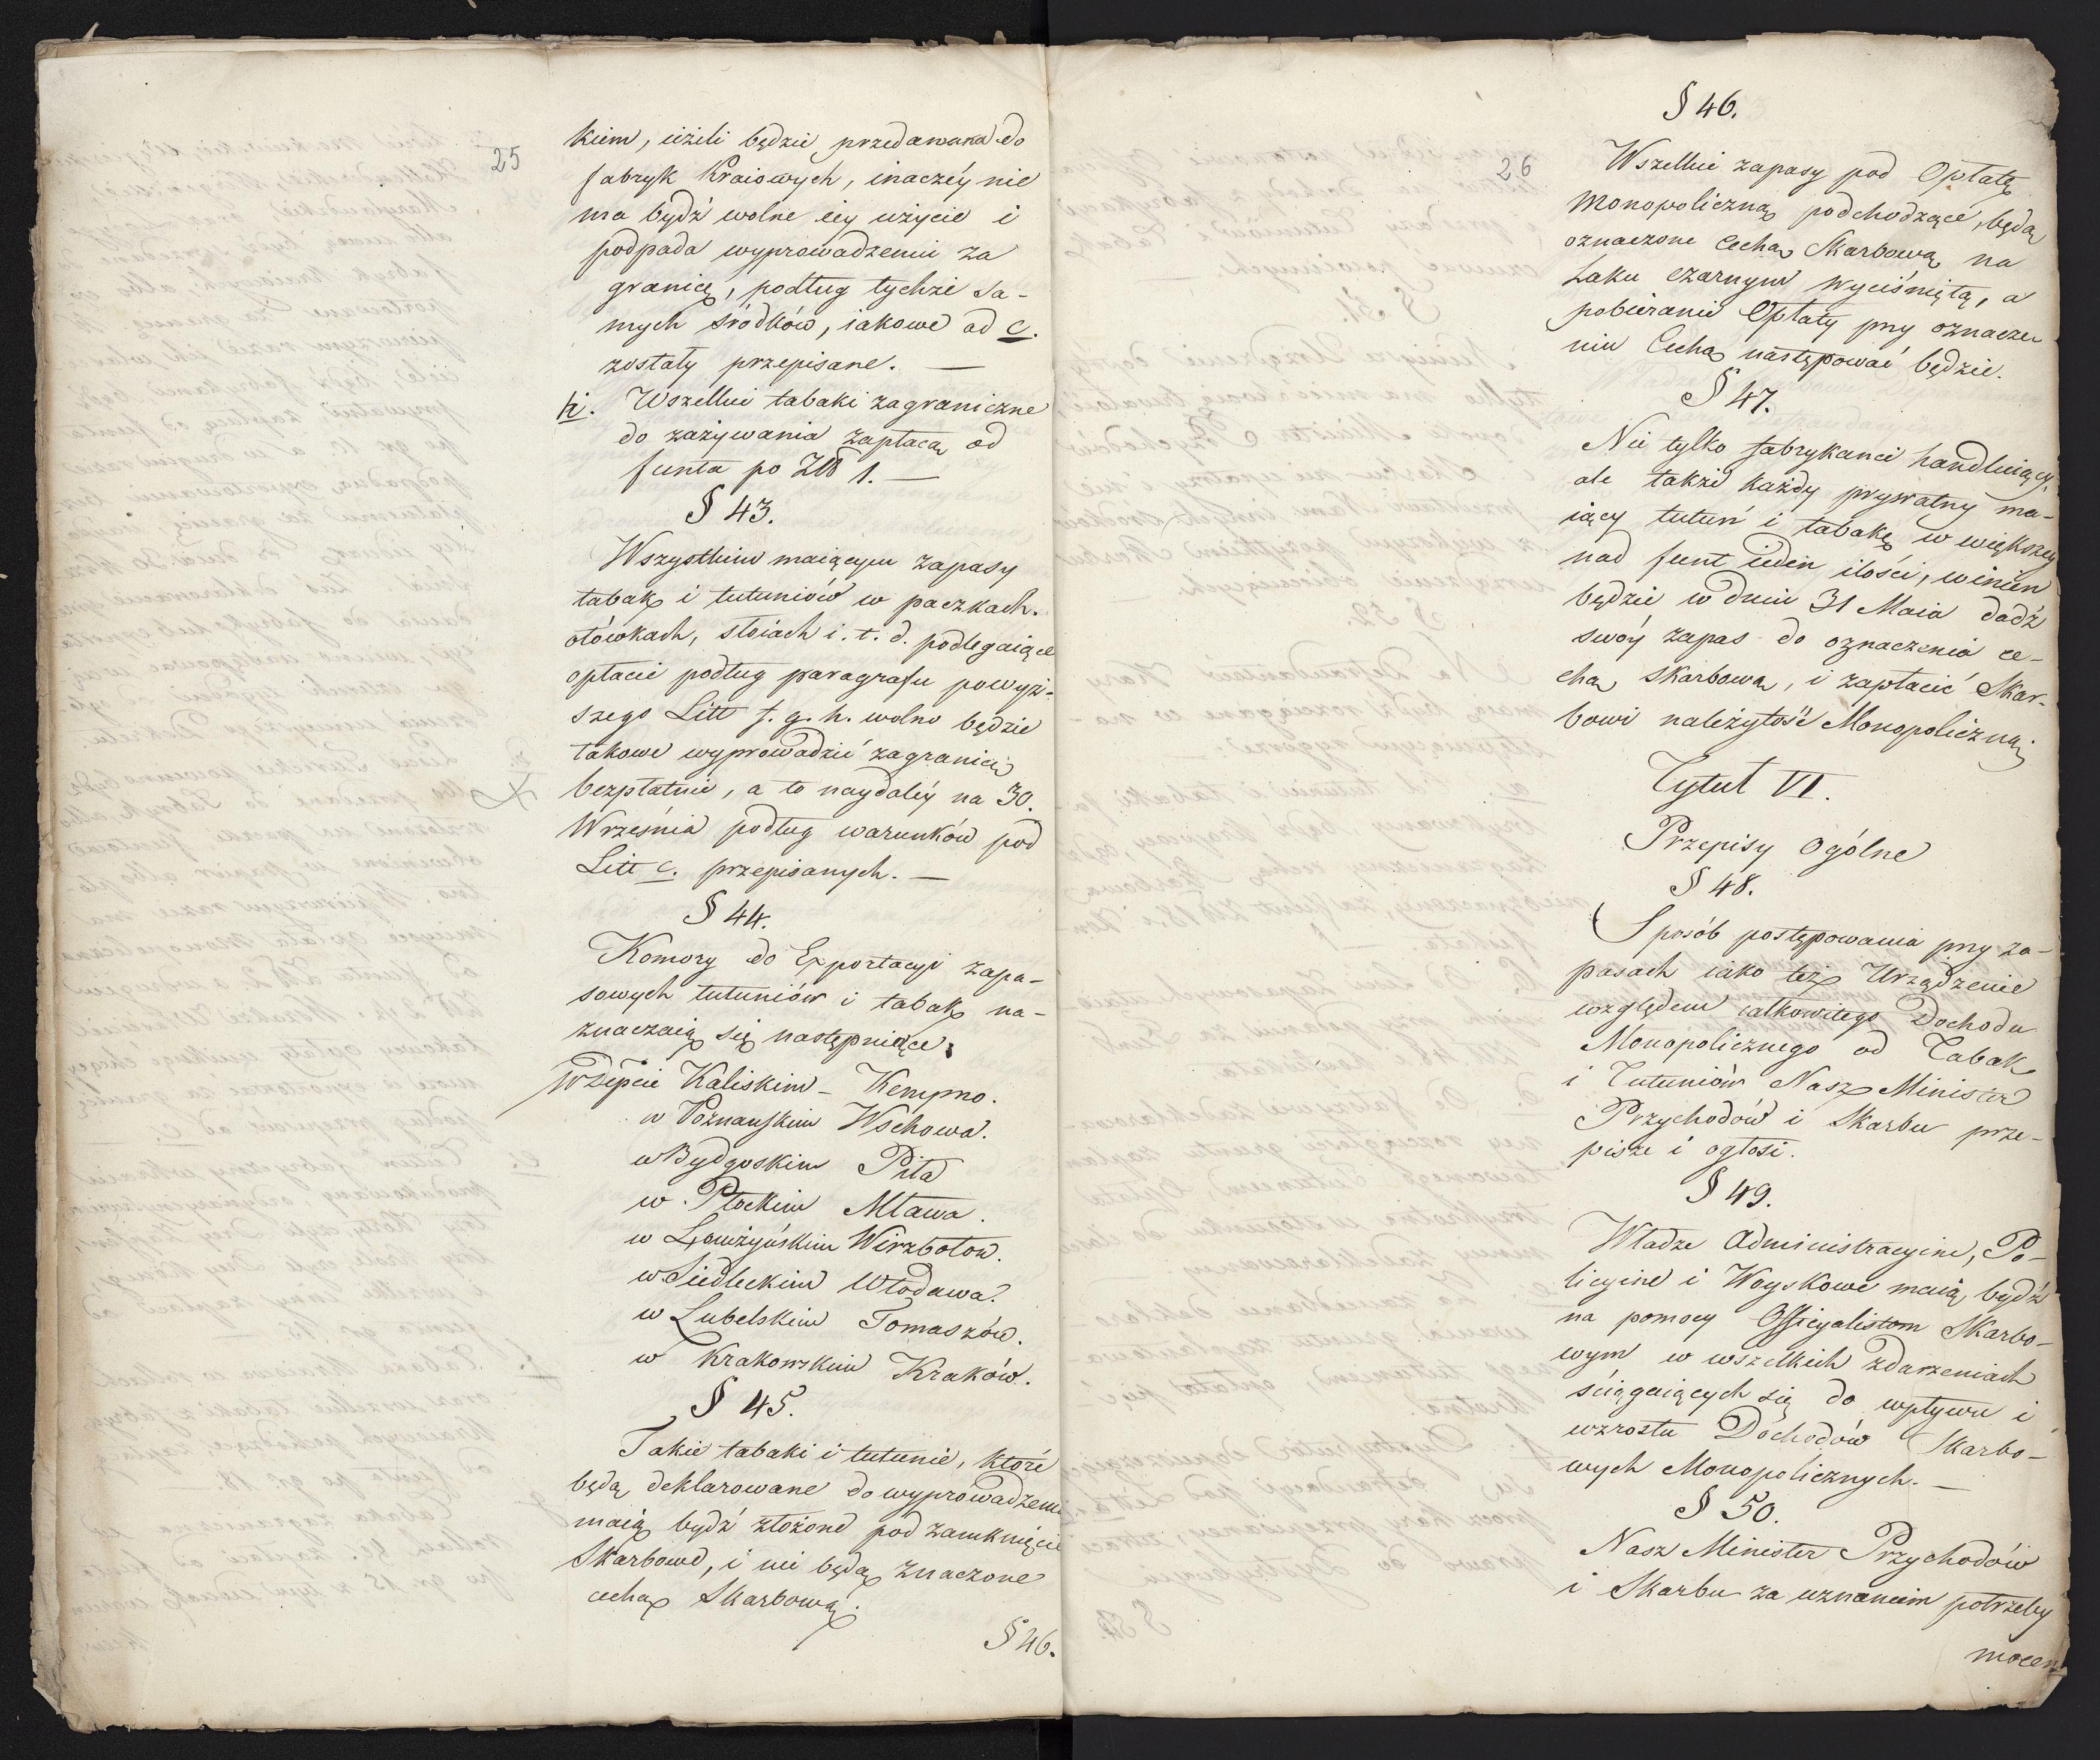 25
kiem, ieżeli będzie przedawana do
fabryk Kraiowych, inaczéy nie
ma bydź wolne iéy użycie i
podpada wyprowadzeniu za
granicę, podług tychże sa-
mych śrődków, iakowe ad c.
zostały przepisane. —
h. Wszelkie tabaki zagraniczne
do zażywania zapłacą od
funta po Złł 1. —
§ 43.
Wszystkim maiącym zapasy
tabak i tutuniów w paczkach.
ołówkach, słoiach i. t. d. podlegaiące
opłacie podług paragrafu powyż-
szego Litt f. g. h. wolno będzie
takowe wyprowadzić zagranicę
bezpłatnie, a to naydaléy na 30.
Września podług warunków pod
Litt c. przepisanych. —
§ 44.
Komory do Exportacyi zapa-
sowych tutuniów i tabak na-
znaczaią się następuiące:
W Depcie Kaliskim – Kempno.
w Poznańskim Wschowa.
w Bydgoskim Piła
w Płockim Mława.
w Łomżyńskim Wirzbołow.
w Siedleckim Włodawa.
w Lubelskim Tomaszów.
w Krakowskim Kraków.
§ 45.
Takie tabaki i tutunie, które
będą deklarowane do wyprowadzeni
maią bydź złożone pod zamknięcie
Skarbowe, i nie będą znaczone
cechą Skarbową.
§ 46.
26
§ 46.
Wszelkie zapasy pod Opłatę
Monopoliczną podchodzące, będą
oznaczone Cechą Skarbową na
Laku czarnym wyciśniętą, a
pobieranie Opłaty przy oznacze
niu Cechą następować będzie.
§ 47.
Nie tylko fabrykanci handluiący,
ale także każdy prywatny ma-
iący tutuń i tabakę w większey
nad funt ieden ilości, winien
będzie w dniu 31 Maia dadź
swóy zapas do oznaczenia ce-
chą skarbową, i zapłacić Skar-
bowi należytość Monopoliczną;
Tytuł VI.
Przepisy Ogólne
§ 48.
Sposób postępowania przy za-
pasach iako też Urządzenie
względem całkowitego Dochodu
Monopolicznego od Tabak
i Tutuniów Nasz Minister
Przychodów i Skarbu prze-
pisze i ogłosi.
§ 49.
Władze Administracyine, Po-
licyine i Woyskowe maią bydź
na pomocy Officyalistom Skarbo-
wym w wszelkich zdarzeniach
ściągaiących się do wpływu i
wzrostu Dochodów Skarbo-
wych Monopolicznych. —
§ 50.
Nasz Minister Przychodów
i Skarbu za uznaniem potrzeby
mocen